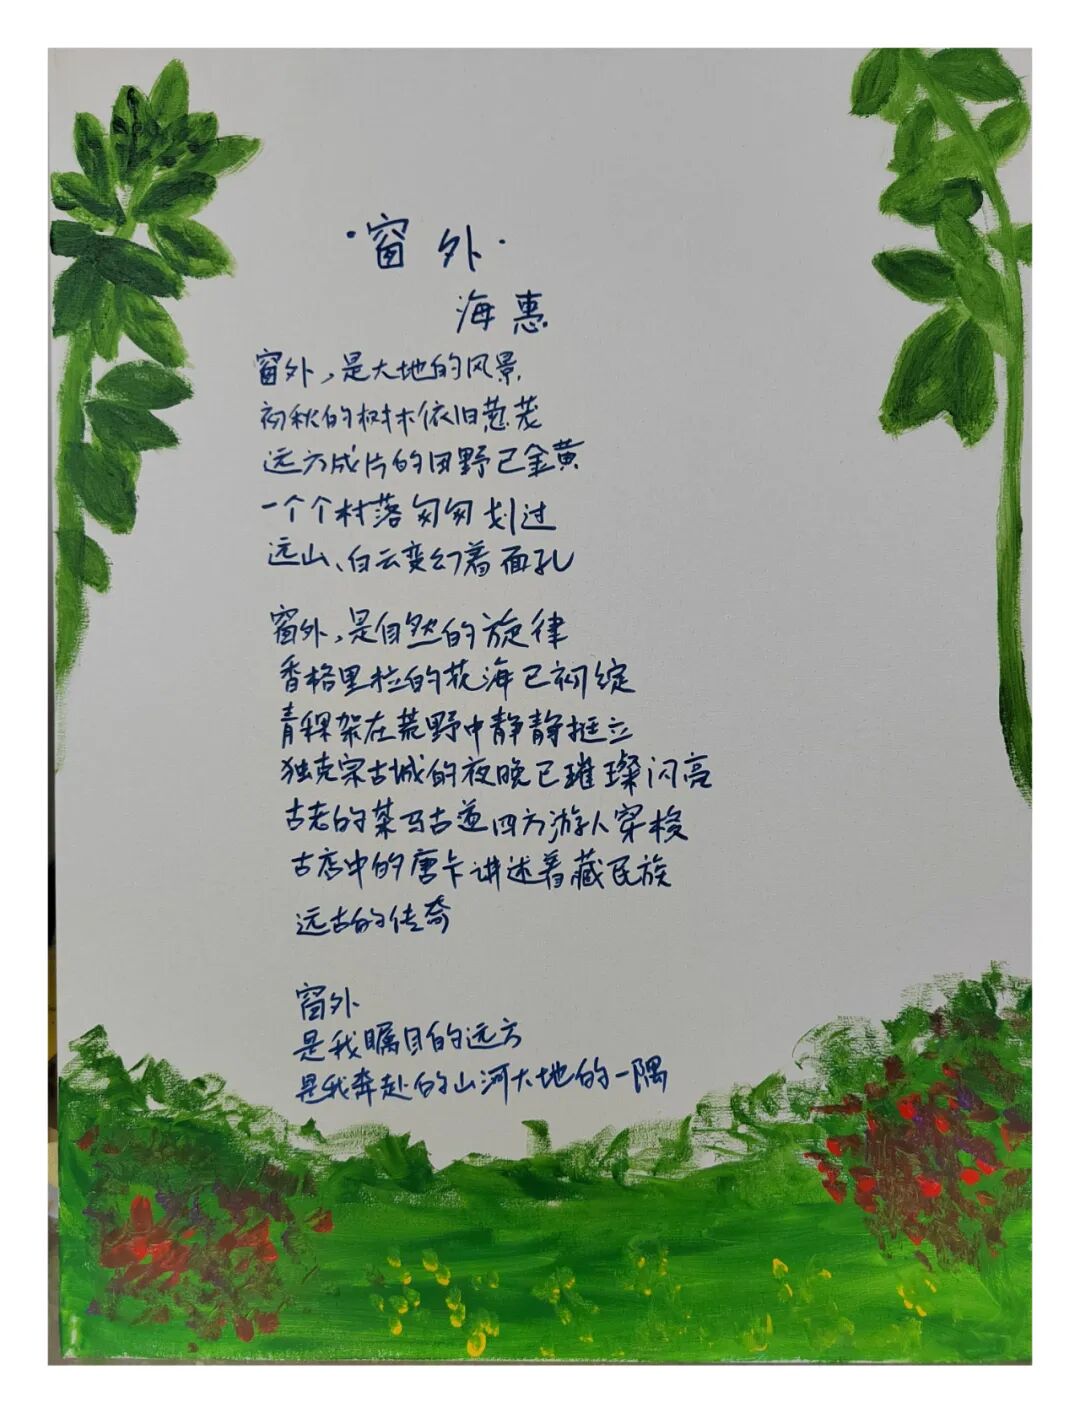 ·窗外·
海惠
窗外，是大地的风景
初秋的树木依旧葱茂
远方成片的田野已金黄
一个个村落匆匆划过
远山、白云变幻着面孔
窗外，是自然的旋律
香格里拉的花海已初绽
青稞架在荒野中静静挺立
独克宗古城的夜晚已璀璨闪亮
古老的茶马古道四方游人穿梭
古店中的唐卡讲述着藏民族
远古的传奇
窗外
是我瞩目的远方
是我奔赴的山河大地的一隅